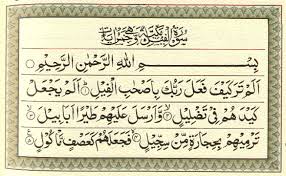 سُوْرَةُ الْفِيْلِ مَكِّيَّةٌ وَّهِيَ خَمْسُ اٰيَاتٍ
بِسْمِ اللّٰهِ الرَّحْمٰنِ الرَّحِيْمِ
اَلَمْ تَرَ كَيْفَ فَعَلَ رَبُّكَ بِاَصْحٰبِ الْفِيْلِ ۝ اَلَمْ يَجْعَلْ
كَيْدَهُمْ فِيْ تَضْلِيْلٍ ۝ وَّاَرْسَلَ عَلَيْهِمْ طَيْرًا اَبَابِيْلَ ۝
تَرْمِيْهِمْ بِحِجَارَةٍ مِّنْ سِجِّيْلٍ ۝ فَجَعَلَهُمْ كَعَصْفٍ مَّاْكُوْلٍ ۝